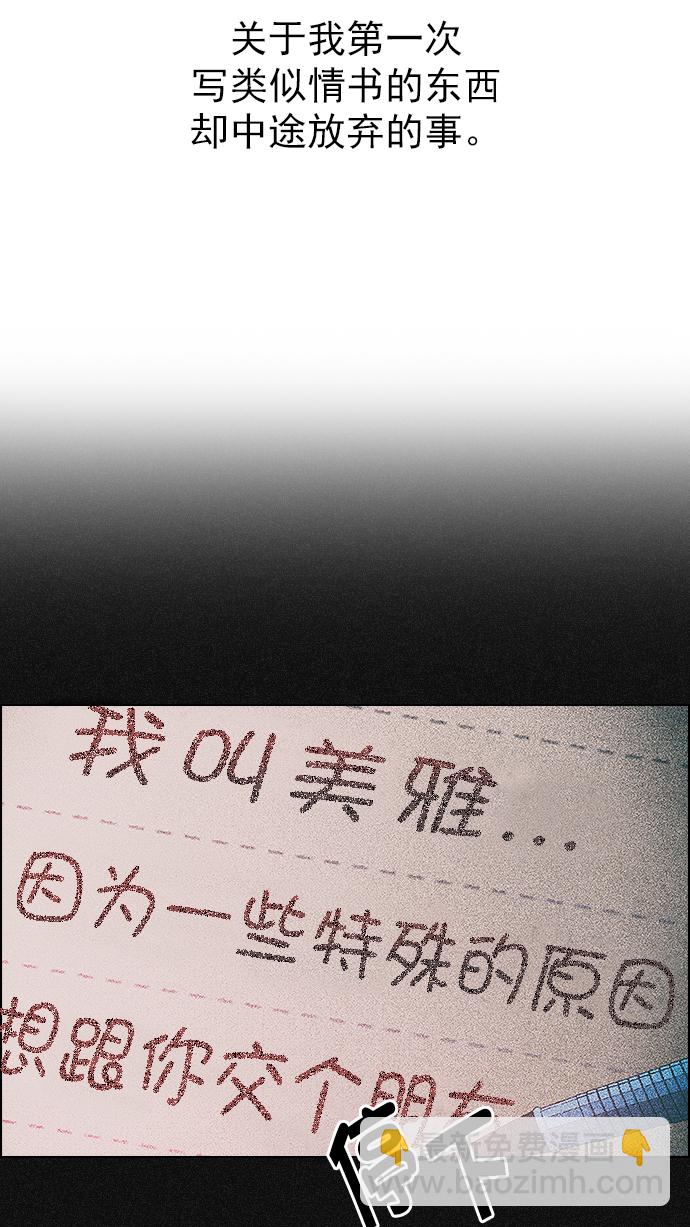 关于我第一次
写类似情书的东西
却中途放弃的事。
我叫美雅...
因为一些特殊的原因
想跟你交个朋友
停下
👇最新免费漫画👇
www.baozimh.com